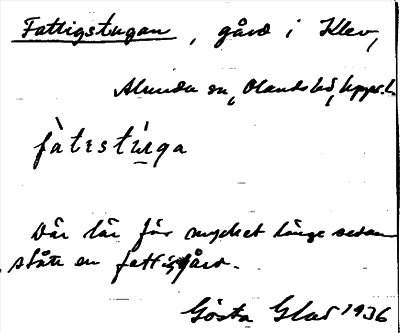 Fattigstugan, gård i Klev,
Alunda sn, Olands hd, Upps. l.
fàtɪstùga
Där lär för mycket länge sedan
stått en fattiggård.
Gösta Glad 1936